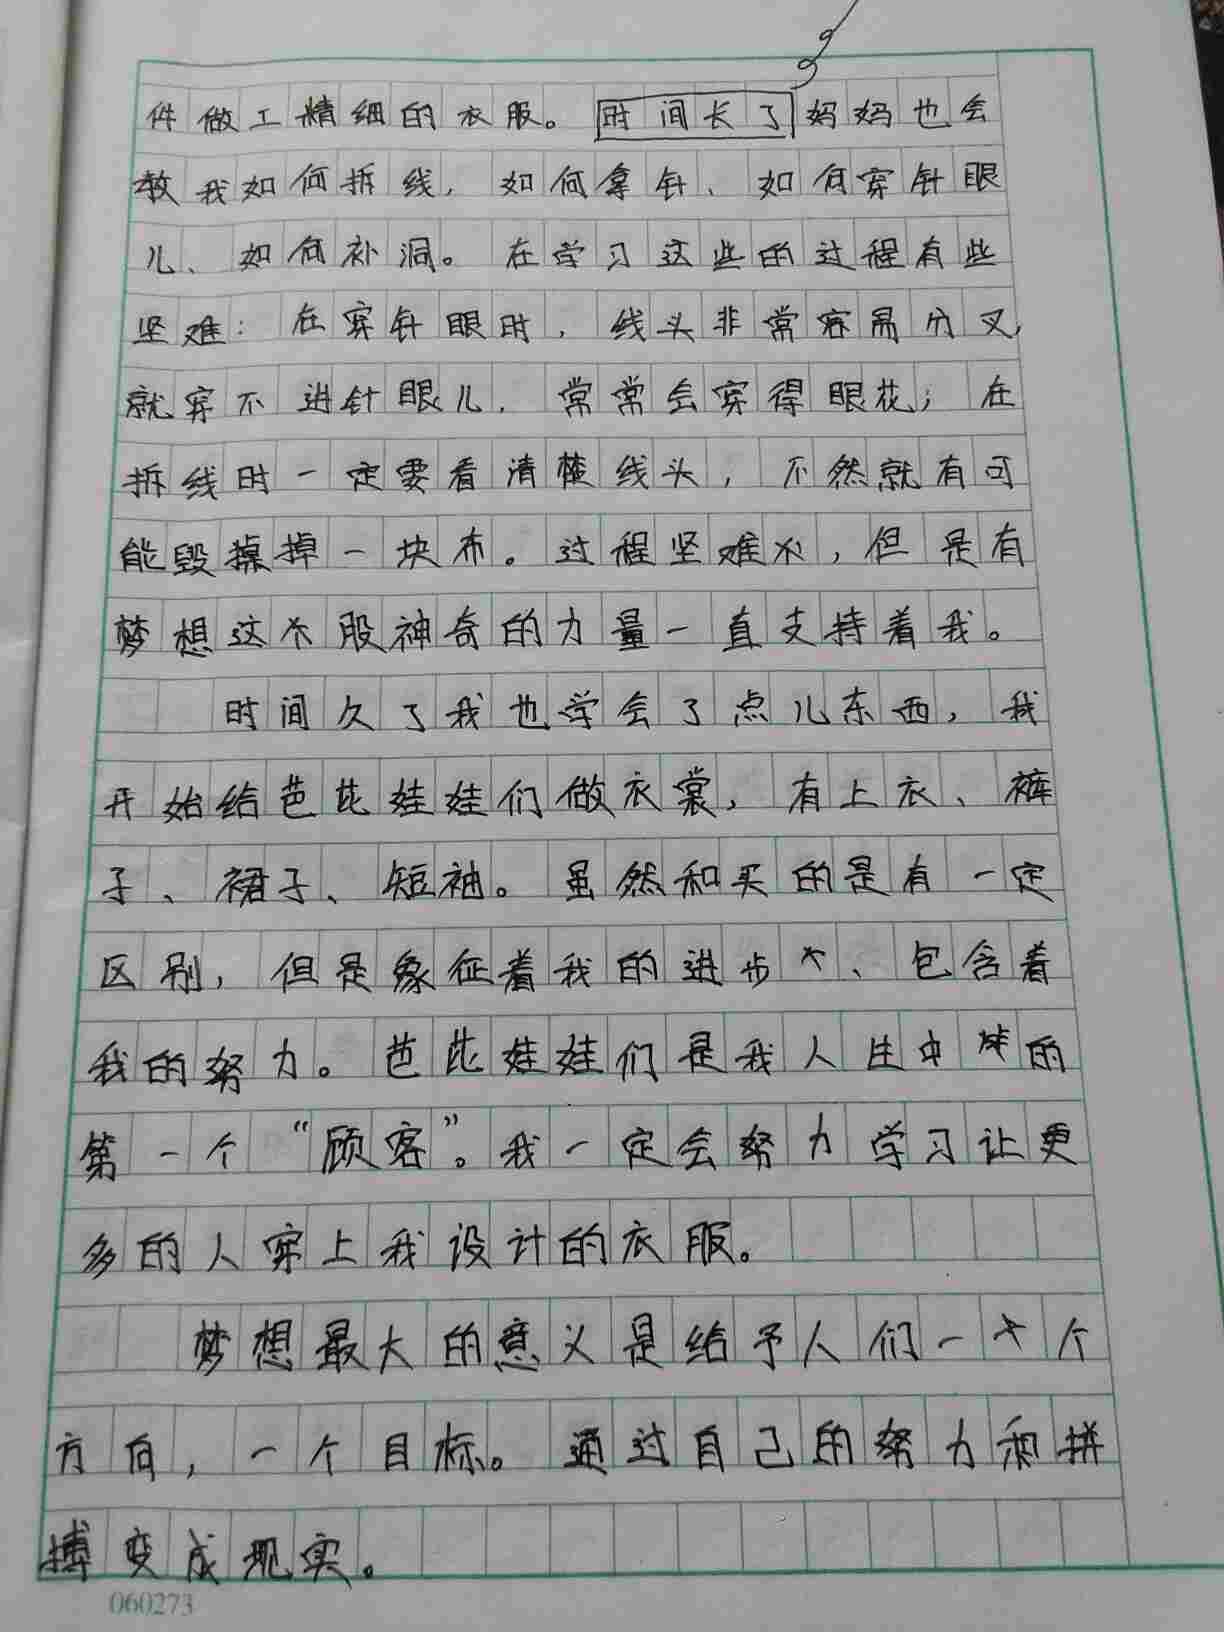 件做工精细的衣服。时间长了妈妈也会
教我如何拆线，如何拿针、如何穿针眼
儿、如何补洞。在学习这些的过程有些
坚难：在穿针眼时，线头非常容易分叉，
就穿不进针眼儿，常常会穿得眼花；在
拆线时一定要看清楚线头，不然就有可
能毁掉一块布。过程坚难，但是有
梦想这股神奇的力量一直支持着我。
时间久了我也学会了点儿东西，我
开始给芭比娃娃们做衣裳，有上衣、裤
子、裙子、短袖。虽然和买的是有一定
区别，但是象征着我的进步、包含着
我的努力。芭比娃娃们是我人生中的
第一个“顾客”。我一定会努力学习让更
多的人穿上我设计的衣服。
梦想最大的意义是给予人们一个
方向，一个目标。通过自己的努力和拼
搏变成现实。
060273